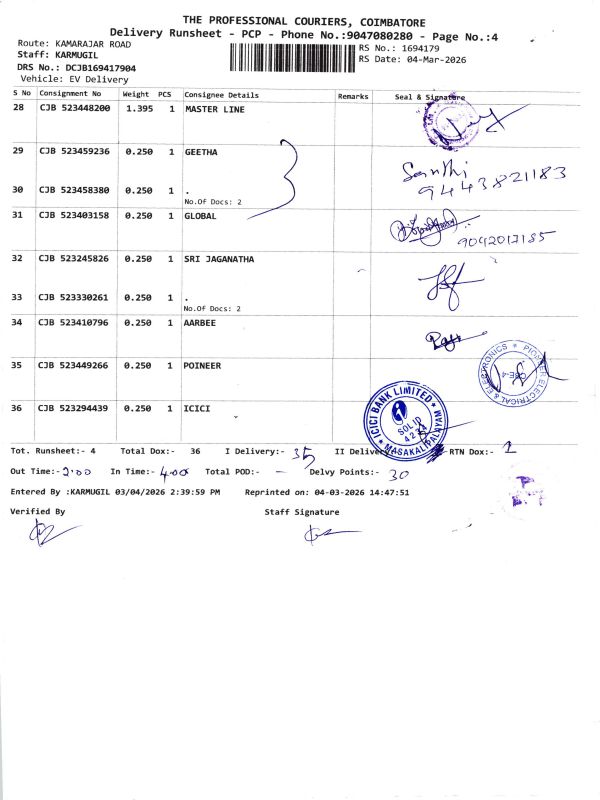 THE PROFESSIONAL COURIERS, COIMBATORE
Delivery Runsheet - PCP - Phone No.:9047080280 - Page No.:4
Route: KAMARAJAR ROAD
Staff: KARMUGIL
DRS No.: DCJB169417904
Vehicle: EV Delivery
RS No.: 1694179
RS Date: 04-Mar-2026
S No Consignment No Weight PCS Consignee Details Remarks Seal & Signature
28 CJB 523448200 1.395 1 MASTER LINE
29 CJB 523459236 0.250 1 GEETHA
Santhi
9443821183
30 CJB 523458380 0.250 1 .
No.Of Docs: 2
31 CJB 523403158 0.250 1 GLOBAL
9042017185
32 CJB 523245826 0.250 1 SRI JAGANATHA
33 CJB 523330261 0.250 1 .
No.Of Docs: 2
34 CJB 523410796 0.250 1 AARBEE
35 CJB 523449266 0.250 1 POINEER
PIONEER ELECTRICAL & ELECTRONICS
CBE-4
36 CJB 523294439 0.250 1 ICICI
ICICI BANK LIMITED
SOL ID
MASAKALIPALAYAM
Tot. Runsheet:- 4 Total Dox:- 36 I Delivery:- 35 II Delivery RTN Dox:- 1
Out Time:- 2.00 In Time:- 4.00 Total POD:- - Delvy Points:- 30
Entered By :KARMUGIL 03/04/2026 2:39:59 PM Reprinted on: 04-03-2026 14:47:51
Verified By Staff Signature